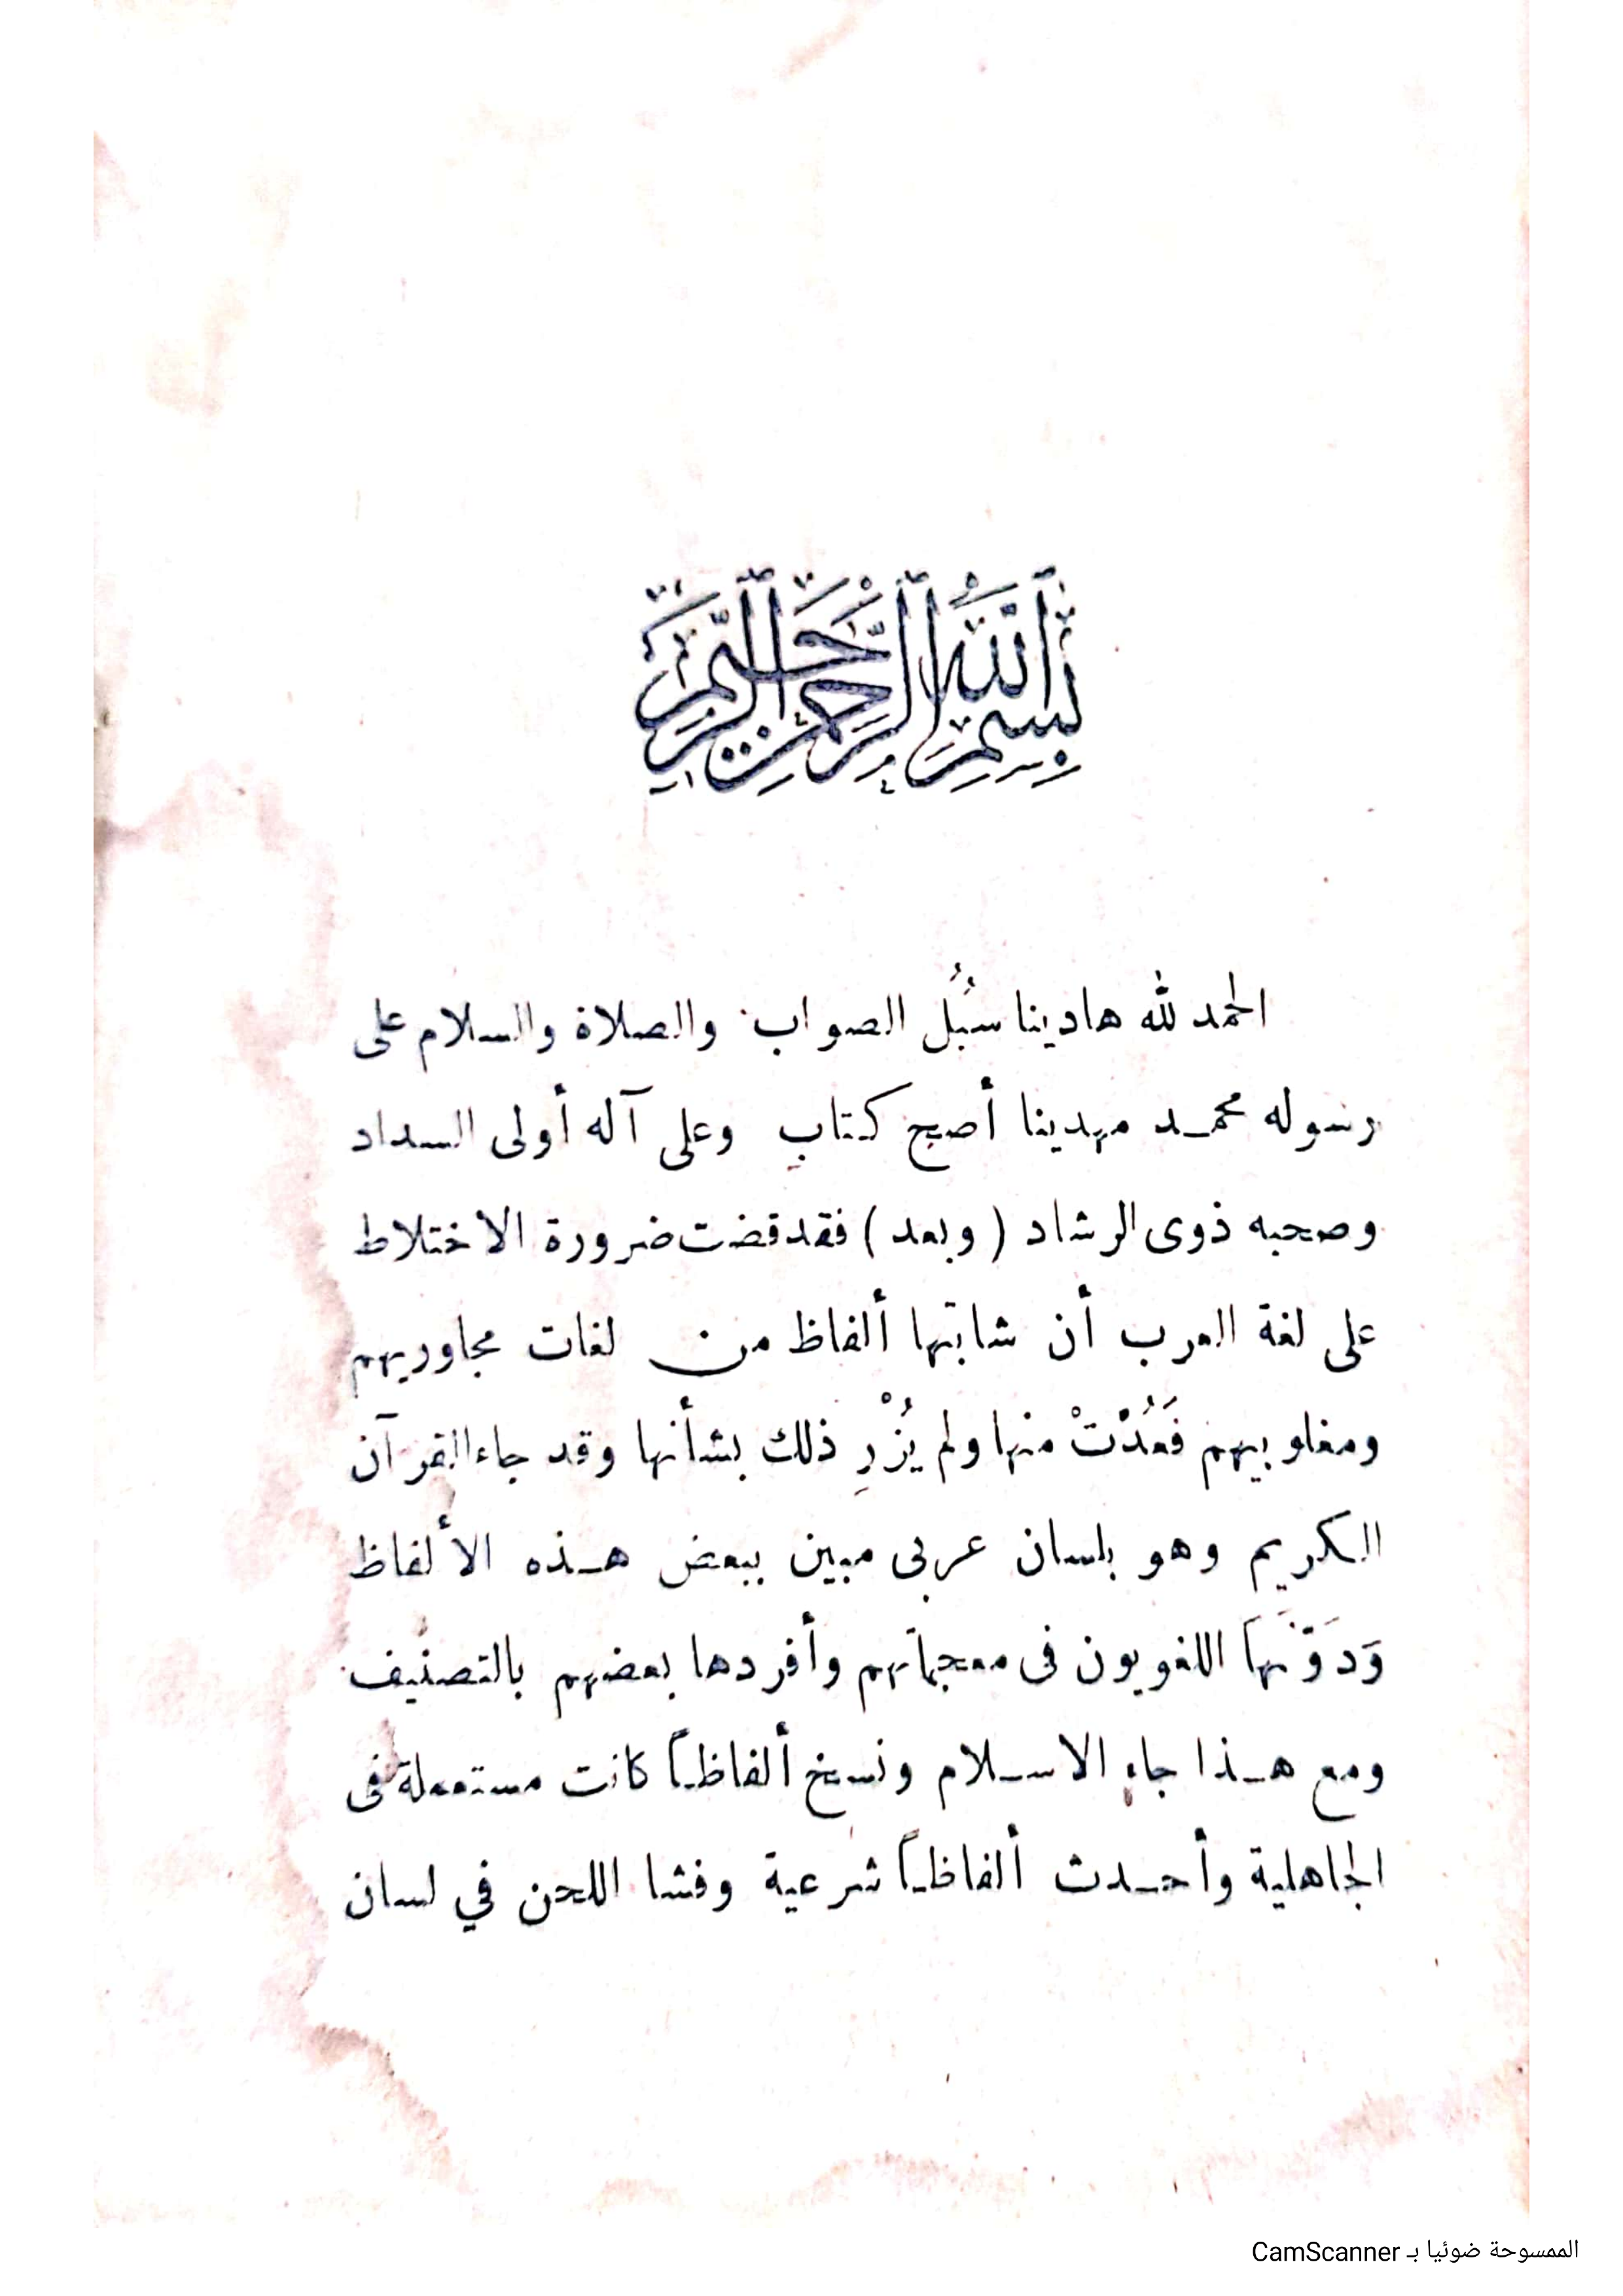 بِسْمِ اللَّهِ الرَّحْمَنِ الرَّحِيمِ
الحمد لله هادينا سُبُل الصواب والصلاة والسلام على
رسوله محمد مهدينا أصح كتاب وعلى آله أولى السداد
وصحبه ذوى الرشاد ( وبعد ) فقد قضت ضرورة الاختلاط
على لغة العرب أن شابتها ألفاظ من لغات مجاوريهم
ومغلوبيهم فَعُدَّتْ منها ولم يُزْرِ ذلك بشأنها وقد جاء القرآن
الكريم وهو بلسان عربى مبين ببعض هذه الألفاظ
وَدَوَّنَهَا اللغويون فى معجماتهم وأفردها بعضهم بالتصنيف
ومع هذا جاء الاسلام ونسخ ألفاظاً كانت مستعملة فى
الجاهلية وأحدث ألفاظاً شرعية وفشا اللحن في لسان
الممسوحة ضوئيا بـ CamScanner